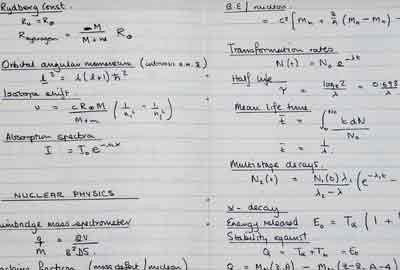 Rydberg Const.
R₀ = R∞
R hydrogen = M / (M + m) R∞
Orbital angular momentum
l² = l(l+1) ħ²
Isotope shift.
ν = c R∞ M / (M + m) (1/n₁² - 1/n₂²)
Absorption spectra
I = I₀ e
NUCLEAR PHYSICS
mass spectrometer
q/M = 2V / B²
fraction (mass defect / nucleon)
B.E / nucleon
= c² [ Mₙ + Z/A (M
Transformation rates
N(t) = N₀ e^-λt
Half life
τ = log e 2 / λ = 0.693
Mean life time
t̄ = ∫ t dN / N₀
t̄ = 1/λ
Multistage decays.
N₂(t) = N₁(0) λ₁ / (λ₂ - λ₁) (e^-λ₁t -
α - decay
Energy released E₀ = Tα (1 +
Stability against
Q = Tα + T = E₀